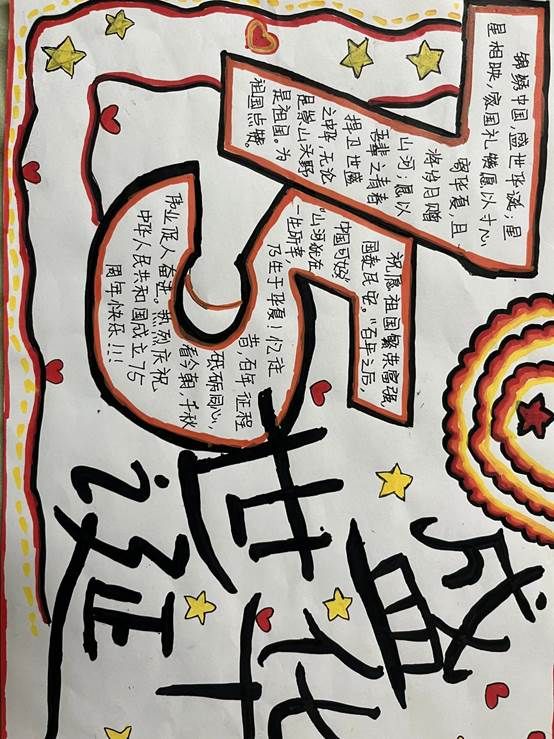 盛世华诞
锦绣中国,盛世华诞;星
星相映,家国礼赞愿以寸心
寄华夏,且
将岁月赠
山河;愿以
吾辈之青春
捍卫世盛
之中华,无论
是崇山沃野
是祖国。为
祖国点赞。
祝愿祖国繁荣富强,
国泰民安。“百年之后,
中国可好
“山河犹在
一生所幸,
75生于华夏!忆往
昔,百年征程
砥砺同心,
看今朝,千秋
伟业促人奋进。热烈庆祝
中华人民共和国成立75
周年快乐!!!